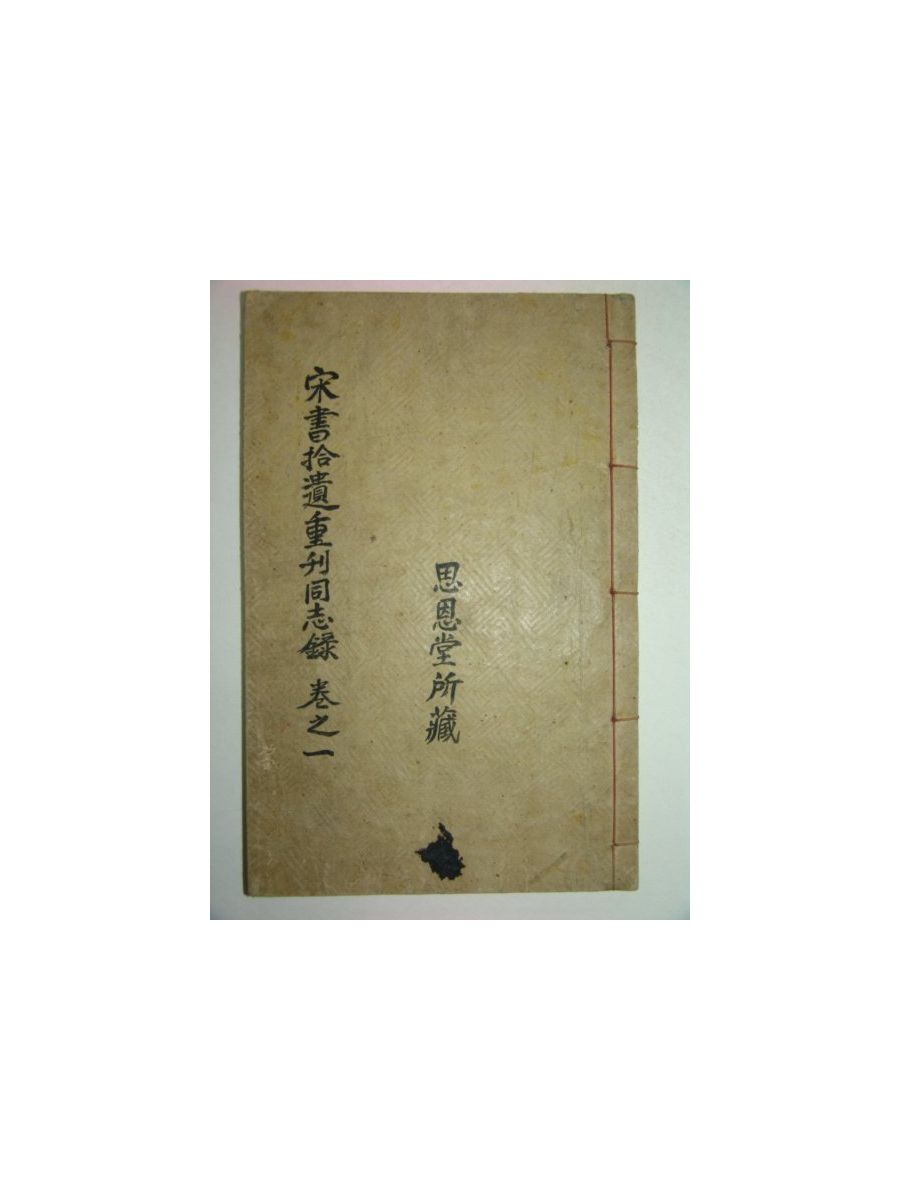 思恩堂所藏
宋書拾遺重刊同志錄 卷之一